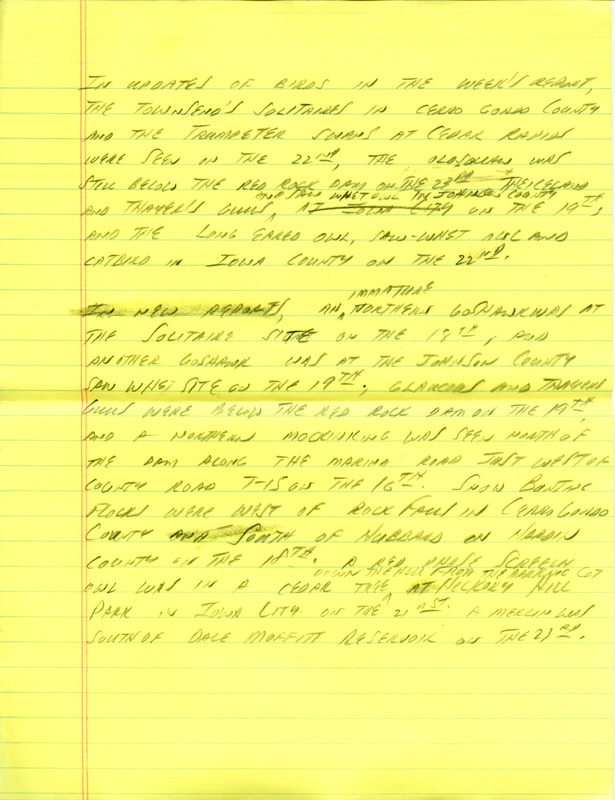 IN UPDATES OF BIRDS IN THE WEEK'S REPORT,
THE TOWNSEND'S SOLITAIRES IN CERRO GORDO COUNTY
AND THE TRUMPETER SWANS AT CEDAR RAPIDS
WERE SEEN ON THE 22ND, THE OLDSQUAW WAS
STILL BELOW THE RED ROCK DAM ON THE 23RD THE ICELAND
AND SAW WHET OWL IN JOHNSON COUNTY
AND THAYER'S GULLS, AT IOWA CITY ON THE 19TH;
AND THE LONG EARED OWL, SAW-WHET OWL AND
CATBIRD IN IOWA COUNTY ON THE 22ND.
IMMATURE
IN NEW REPORTS, AN NORTHERN GOSHAWK WAS AT
THE SOLITAIRE SITE ON THE 18TH; AND
ANOTHER GOSHAWK WAS AT THE JOHNSON COUNTY
SAW WHET SITE ON THE 19TH; GLAUCOUS AND THAYERS
GULLS WERE BELOW THE RED ROCK DAM ON THE 19TH,
AND A NORTHERN MOCKINKING WAS SEEN NORTH OF
THE DAM ALONG THE MARINA ROAD JUST WEST OF
COUNTY ROAD T-15 ON THE 18TH. SNOW BUNTING
FLOCKS WERE WEST OF ROCK FALLS IN CERRO GORDO
COUNTY AND SOUTH OF HUBBARD ON HARDIN
COUNTY ON THE 18TH. A RED PHASE SCREECH
DOWN THE HILL FROM THE PARKING LOT
OWL WAS IN A CEDAR TREE AT HICKORY HILL
PARK IN IOWA CITY. ON THE 21ST. A MERLIN WAS
SOUTH OF DALE MOFFITT RESERVOIR ON THE 23RD.